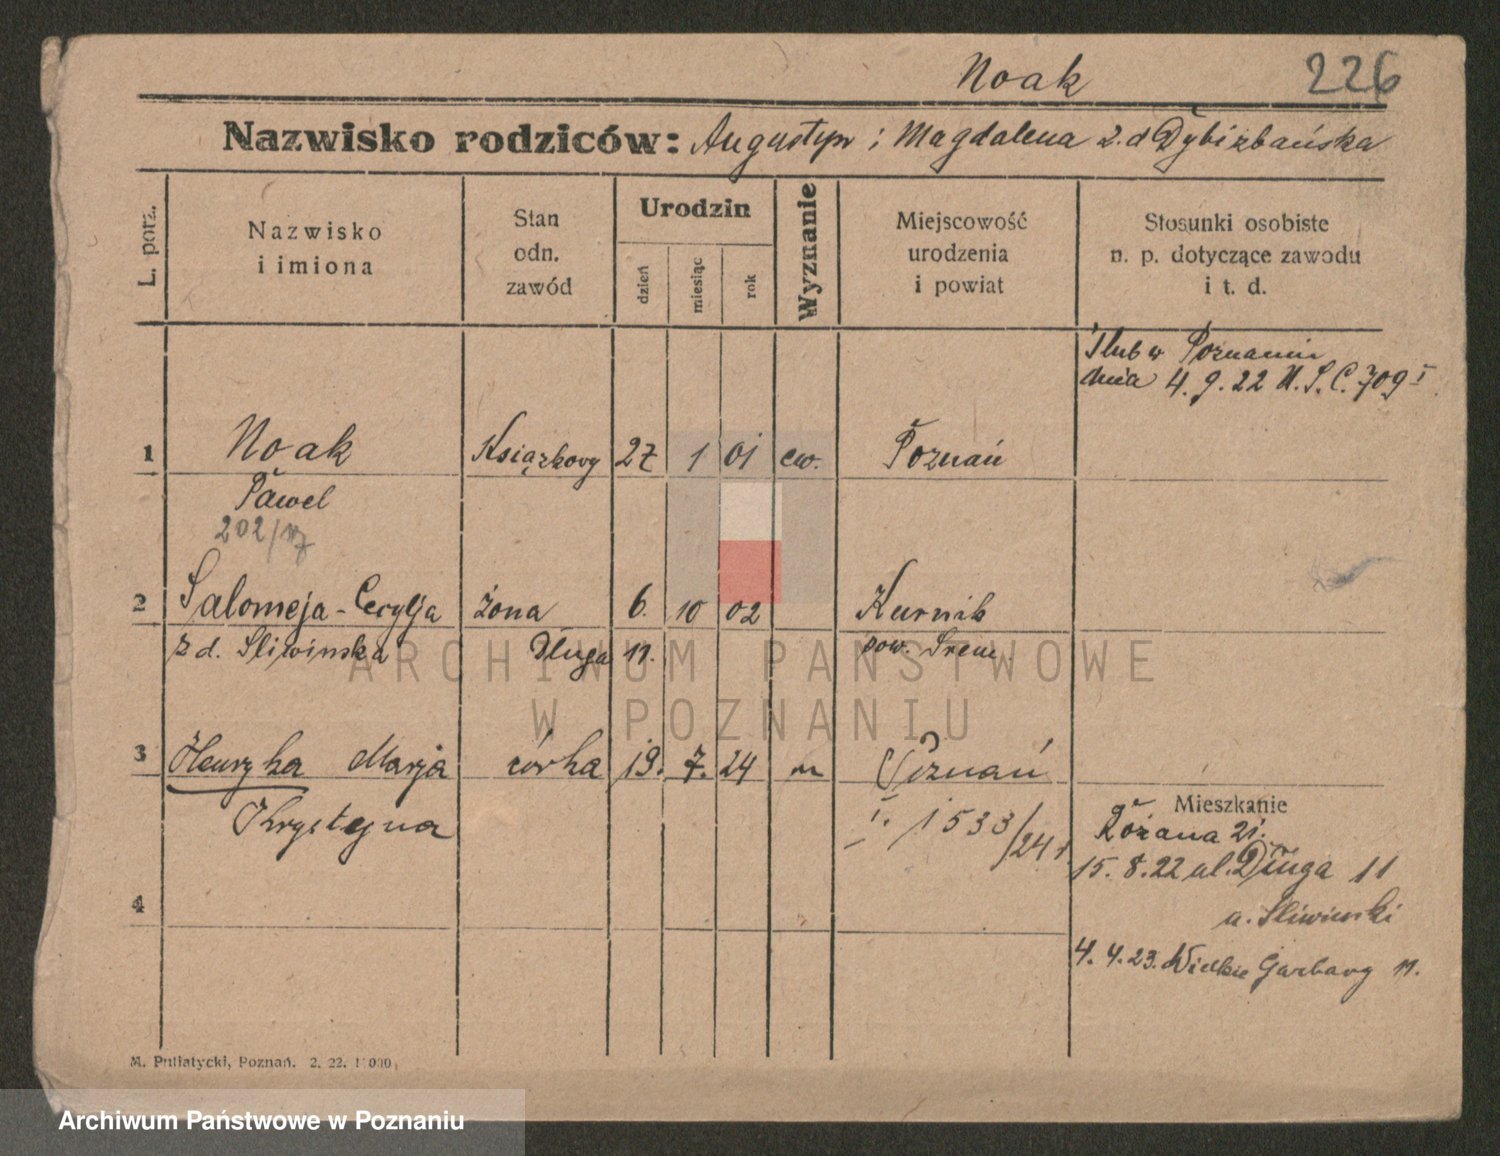 Noak 226
Nazwisko rodziców: Augustyn i Magdalena z.d Dybizbańska
L. porz.
Nazwisko
i imiona
Stan
odn.
zawód
Urodzin
dzień
miesiąc
rok
Wyznanie
Miejscowość
urodzenia
i powiat
Stosunki osobiste
n. p. dotyczące zawodu
i t. d.
Ślub w Poznaniu
dnia 4.9.22 U.S.C. 709 I
1 Noak Książkowy 27 1 01 ew. Poznań
Paweł
202/
2 Salomeja-Cecylja żona 6. 10 02 Kurnik
z d. Śliwińska Długa 11. pow. Śrem.
3 Henryka Marja córka 19. 7. 24 Poznań
Krystyna I. 1533/24
4
Mieszkanie
Różana 21.
15.8.22 ul. Długa 11
u. Śliwiński
4.4.23. Wielkie Garbary 11.
M. Putiatycki, Poznań. 2. 22.
ARCHIWUM PAŃSTWOWE
W POZNANIU
Archiwum Państwowe w Poznaniu